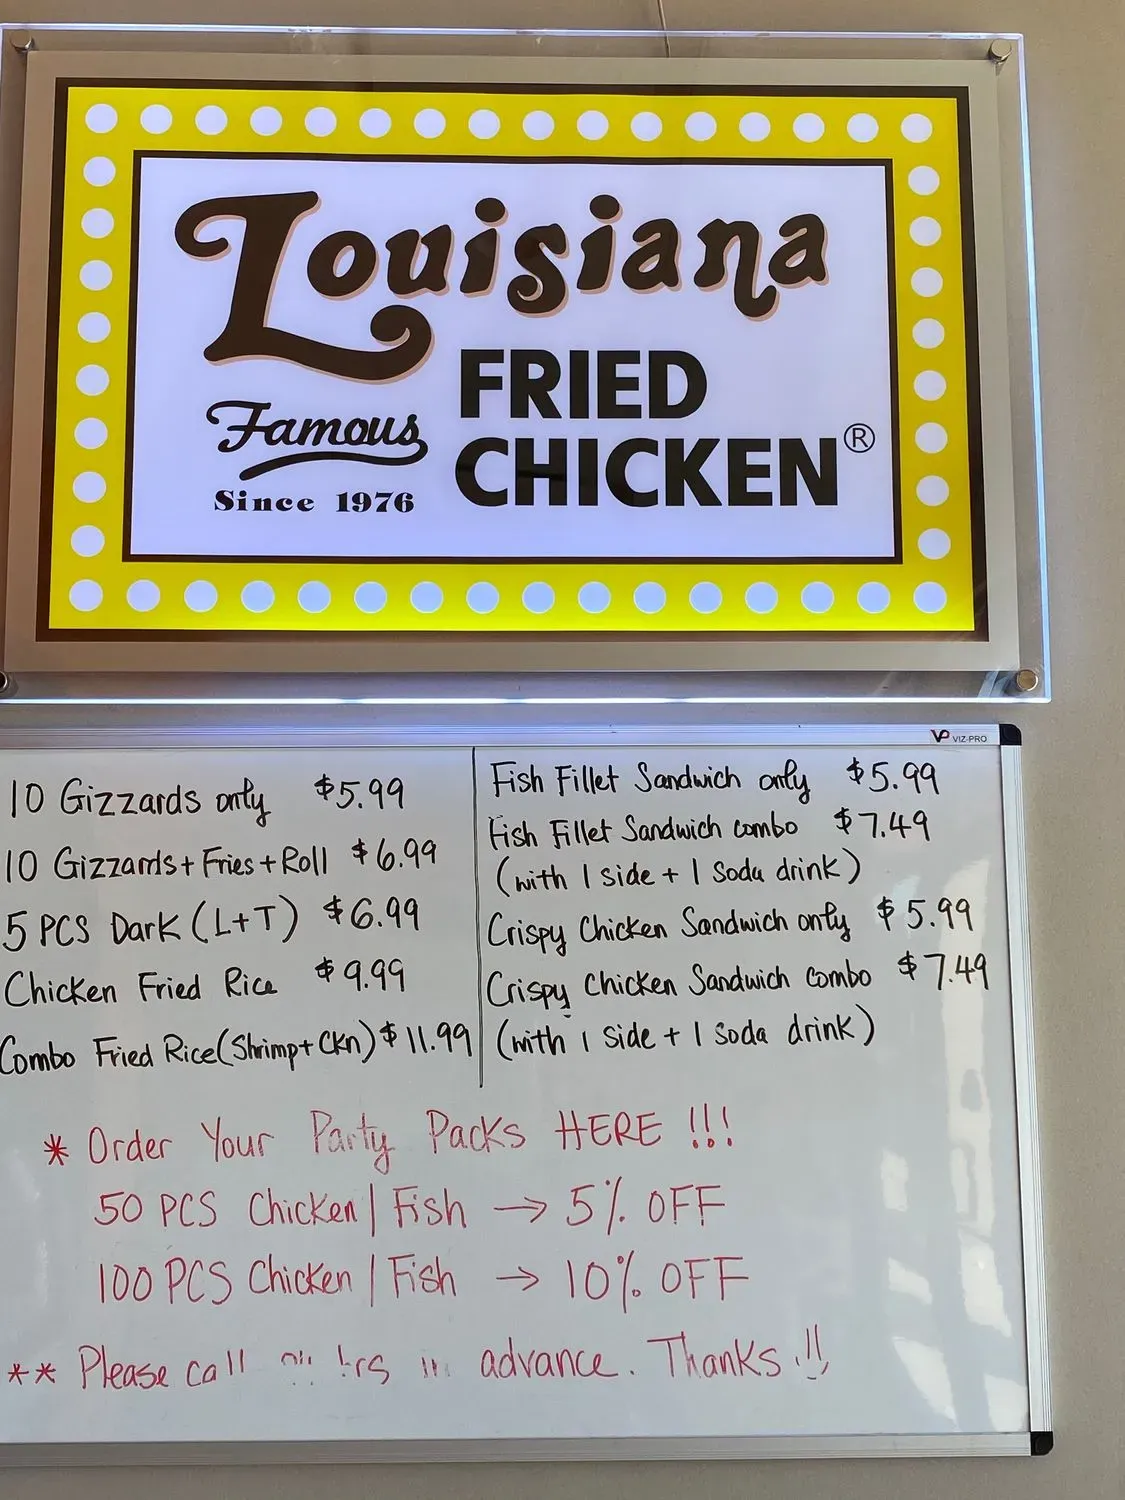 Louisiana
FRIED
CHICKEN®
Famous
Since 1976
VP VIZ-PRO
10 Gizzards only $5.99
10 Gizzards + Fries + Roll $6.99
5 PCS Dark (L+T) $6.99
Chicken Fried Rice $9.99
Combo Fried Rice (Shrimp + CKn) $11.99
Fish Fillet Sandwich only $5.99
Fish Fillet Sandwich combo $7.49
(with 1 side + 1 Soda drink)
Crispy Chicken Sandwich only $5.99
Crispy Chicken Sandwich combo $7.49
(with 1 side + 1 Soda drink)
* Order Your Party Packs HERE !!!
50 PCS Chicken / Fish → 5% OFF
100 PCS Chicken / Fish → 10% OFF
** Please call hrs in advance. Thanks !!